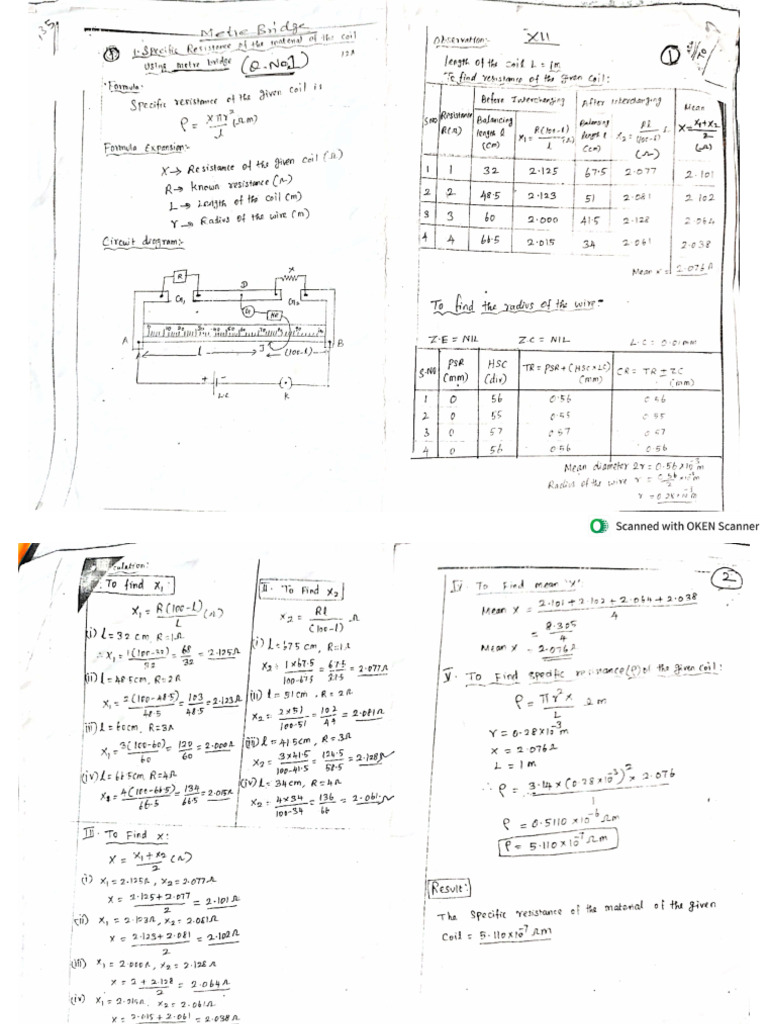 135
Metre Bridge
① 1. Specific Resistance of the material of the coil
using metre bridge (Q.No.1)
Formula:-
Specific resistance of the given coil is
ρ = Xπr²/l (Ωm)
Formula Expansion:-
X → Resistance of the given coil (Ω)
R → Known resistance (Ω)
L → Length of the coil (m)
r → Radius of the wire (m)
Circuit diagram:-
R
X
G₁
D
G₂
G
HR
A
l
J
(100-l)
B
+
-
Le
K
Observation:-
XII
①
length of the coil L = 1m
To find resistance of the given coil:
S.No
Resistance R(Ω)
Before Interchanging
After Interchanging
Mean X = X₁+X₂/2 (Ω)
Balancing length l (cm)
X₁ = R(100-l)/l (Ω)
Balancing length l (cm)
X₂ = Rl/(100-l) (Ω)
1 1 32 2.125 67.5 2.077 2.101
2 2 48.5 2.123 51 2.081 2.102
3 3 60 2.000 41.5 2.128 2.064
4 4 66.5 2.015 34 2.061 2.038
Mean X = 2.076Ω
To find the radius of the wire:-
Z.E = NIL Z.C = NIL L.C = 0.01mm
S.NO PSR (mm) HSC (div) TR = PSR+(HSC×LC) (mm) CR = TR ± ZC (mm)
1 0 56 0.56 0.56
2 0 55 0.55 0.55
3 0 57 0.57 0.57
4 0 56 0.56 0.56
Mean diameter 2r = 0.56×10⁻³m
Radius of the wire r = 0.56/2 ×10⁻³m
r = 0.28×10⁻³m
Scanned with OKEN Scanner
culation:
To find X₁:
X₁ = R(100-L)/L (Ω)
(i) l = 32 cm, R = 1Ω
∴ X₁ = 1(100-32)/32 = 68/32 = 2.125Ω
(ii) l = 48.5cm, R = 2Ω
X₁ = 2(100-48.5)/48.5 = 103/48.5 = 2.123Ω
(iii) l = 60cm, R = 3Ω
X₁ = 3(100-60)/60 = 120/60 = 2.000Ω
(iv) l = 66.5cm, R = 4Ω
= 4(100-66.5)/66.5 = 134/66.5 = 2.015Ω
II. To Find X₂
X₂ = Rl/(100-l) Ω
(i) l = 67.5cm, R = 1Ω
X₂ = 1×67.5/100-67.5 = 67.5/ = 2.077Ω
(ii) l = 51cm, R = 2Ω
X₂ = 2×51/100-51 = 102/49 = 2.081Ω
(iii) l = 41.5cm, R = 3Ω
X₂ = 3×41.5/100-41.5 = 124.5/58.5 = 2.128Ω
(iv) l = 34cm, R = 4Ω
X₂ = 4×34/100-34 = 136/66 = 2.061Ω
III. To Find X:
X = X₁+X₂/2 (Ω)
(i) X₁ = 2.125Ω, X₂ = 2.077Ω
X = 2.125+2.077/2 = 2.101Ω
(ii) X₁ = 2.123Ω, X₂ = 2.081Ω
X = 2.123+2.081/2 = 2.102Ω
(iii) X₁ = 2.000Ω, X₂ = 2.128Ω
X = 2+2.128/2 = 2.064Ω
(iv) X₁ = 2.015Ω, X₂ = 2.061Ω
X = 2.015+2.061 = 2.038Ω
②
IV. To Find mean 'X'.
Mean X = 2.101+2.102+2.064+2.038/4
= 8.305/4
Mean X = 2.076Ω
V. To Find specific resistance (ρ) of the given coil:
ρ = πr²X/L Ωm
r = 0.28×10⁻³m
X = 2.076Ω
L = 1m
∴ ρ = 3.14×(0.28×10⁻³)²×2.076/1
ρ = 0.5110×10⁻⁶Ωm
ρ = 5.110×10⁻⁷Ωm
Result:
The Specific resistance of the material of the given
Coil = 5.110×10⁻⁷Ωm